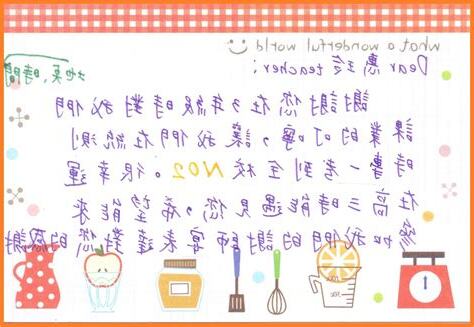 what a wonderful world
Dear 惠玲 teacher:
謝謝您在3年級時對我們
課業的叮嚀,讓我們在統測
時專一考到全校NO2.很幸運
在高三時能遇見您,希望能來
參加我們的謝師宴表達對您的感謝
時間